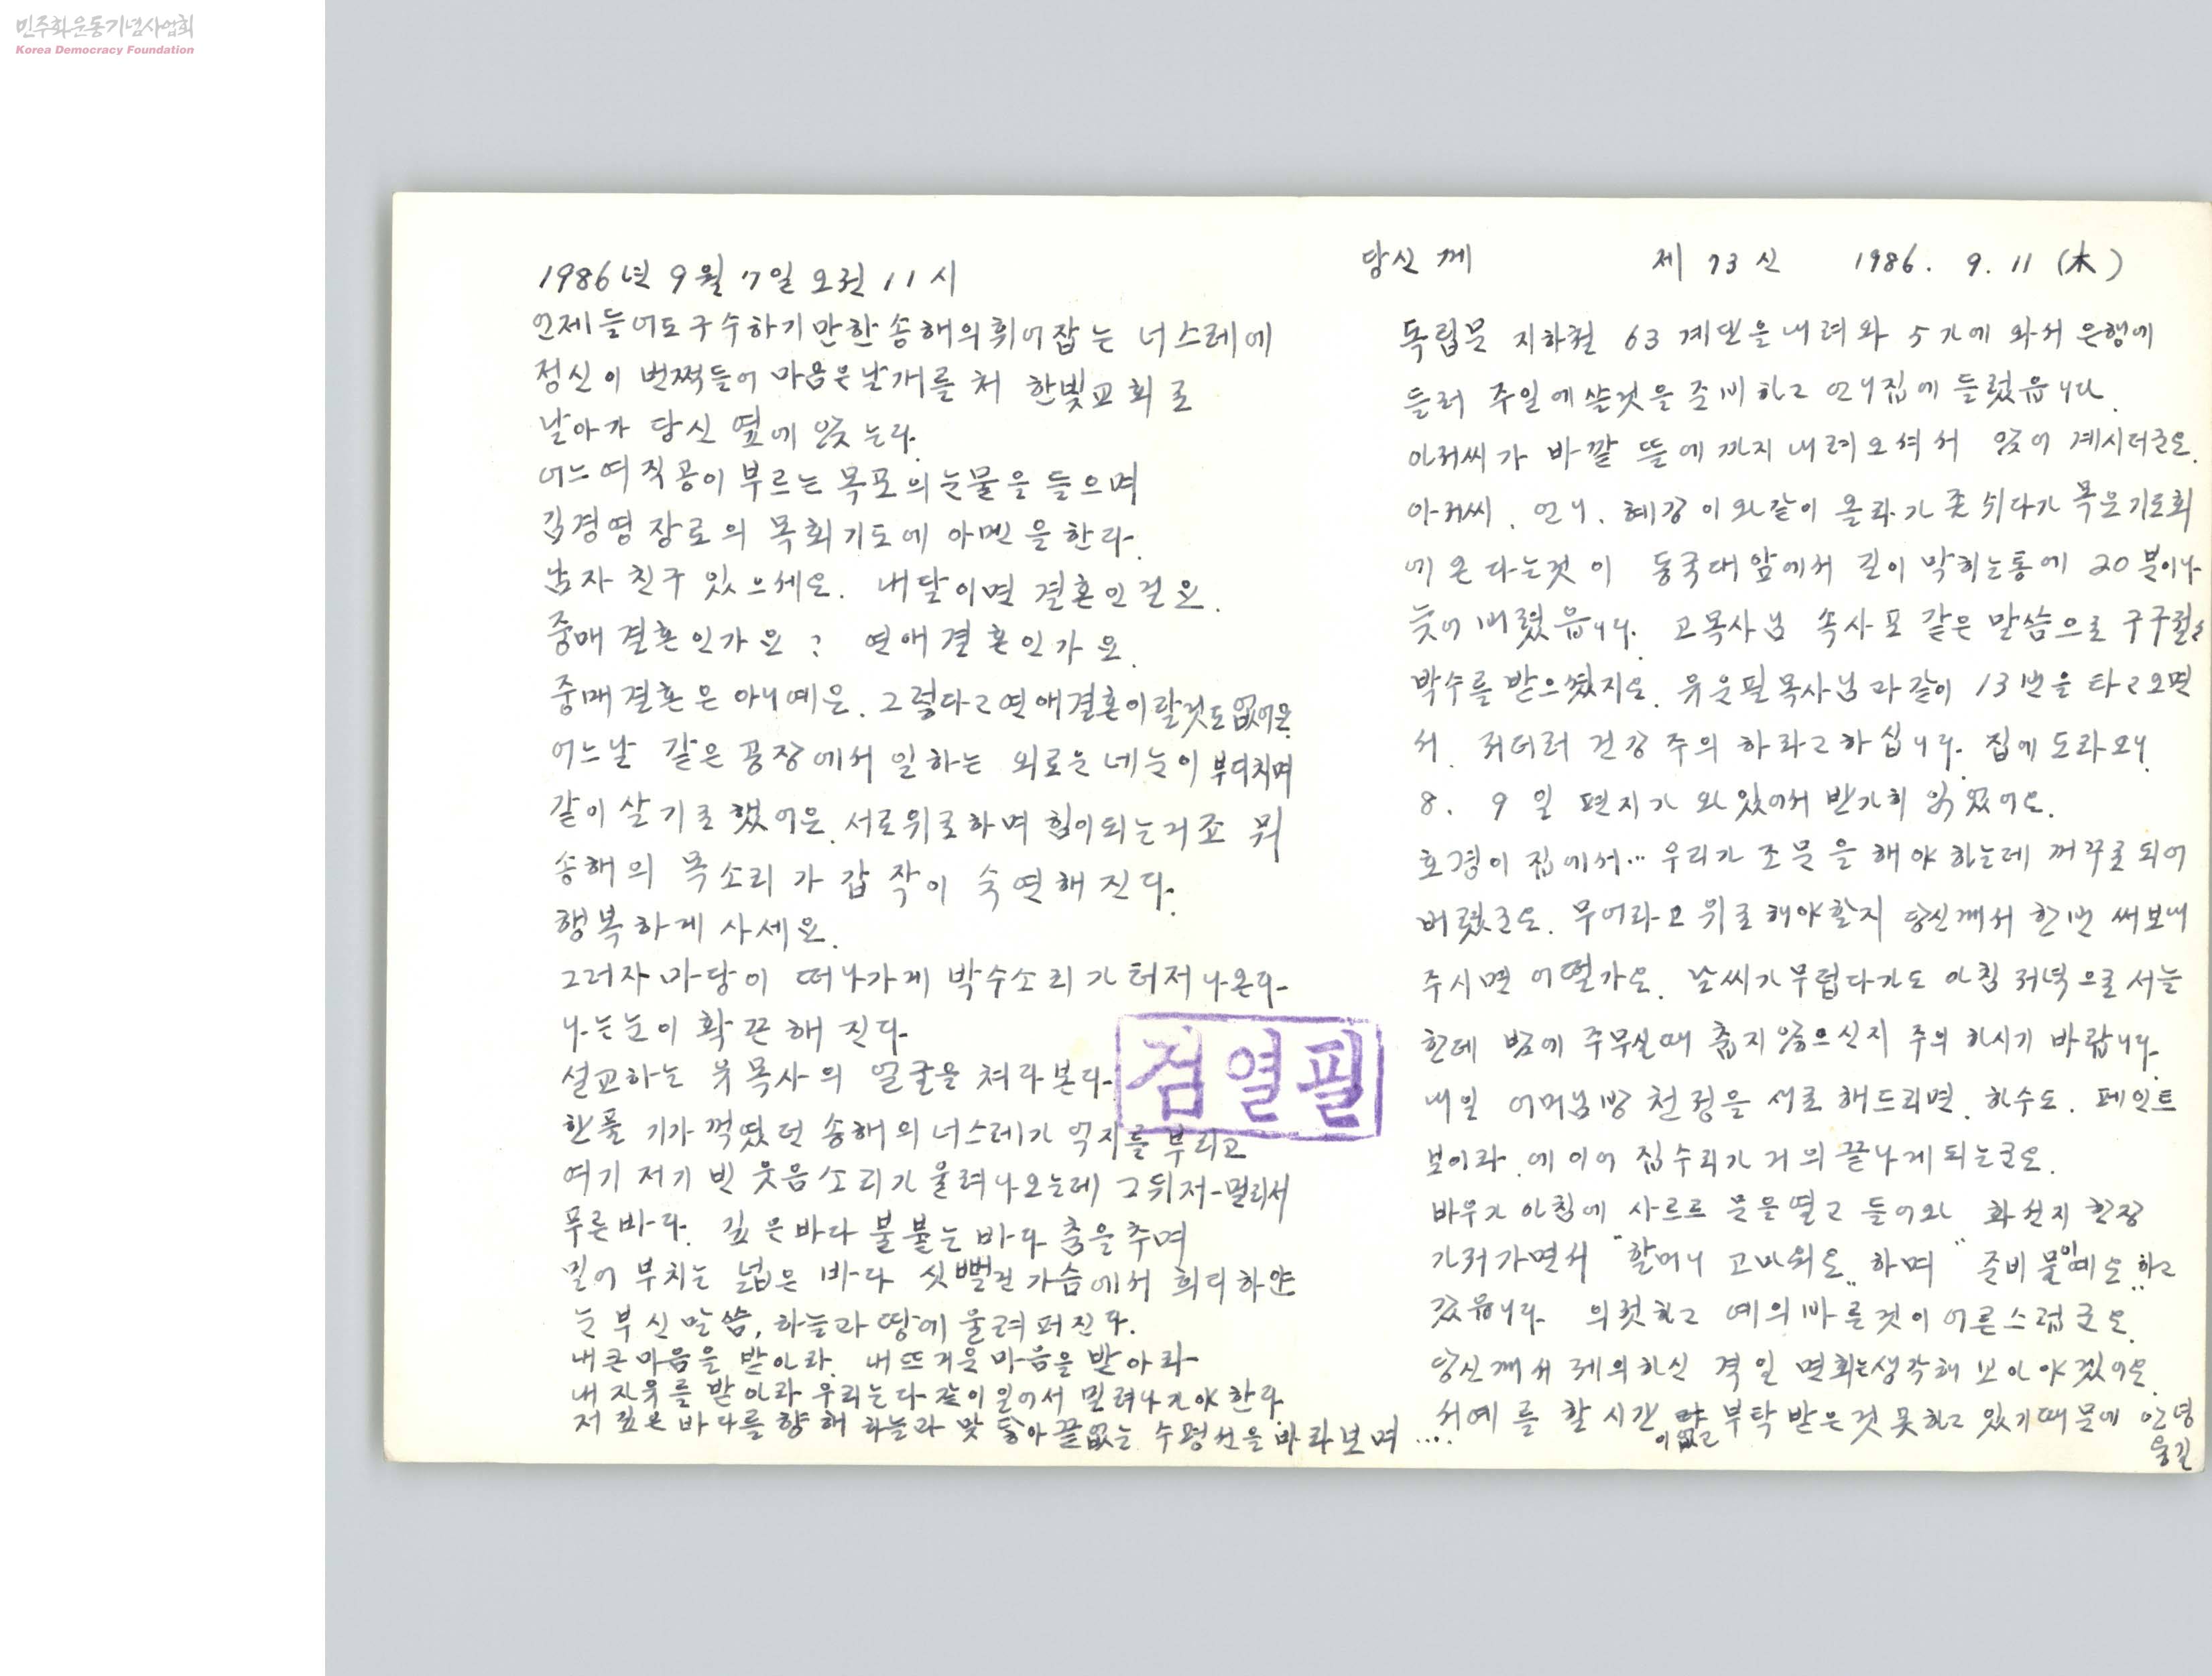 민주화운동기념사업회
Korea Democracy Foundation
1986년 9월 7일 오전 11시
언제 들어도 구수하기만한 송해의 휘어잡는 너스레에
정신이 번쩍들어 마음은 날개를 처 한빛교회로
날아가 당신 옆에 앉는다.
어느 여직공이 부르는 목포의 눈물을 들으며
김경영 장로의 목회기도에 아멘을 한다.
남자 친구 있으세요. 내달이면 결혼인걸요.
중매 결혼인가요? 연애결혼인가요.
중매결혼은 아니예요. 그렇다고 연애결혼이랄것도 없어요.
어느날 같은 공장에서 일하는 외로운 네눈이 부디치며
같이 살기로 했어요. 서로위로하며 힘이되는거죠 뭐
송해의 목소리가 갑작이 숙연해진다.
행복하게 사세요.
그러자 마당이 떠나가게 박수소리가 터저 나온다-
나는 눈이 확끈해 진다.
설교하는 유목사의 얼굴을 쳐다본다-
한풀 기가 꺽였던 송해의 너스레가 억지를 부리고
여기 저기 빈 웃음소리가 울려나오는데 그뒤 저-멀리서
푸른바다. 깊은바다 불붙는 바다 춤을추며
밀어 부치는 넓은 바다 싯뻘건 가슴에서 희디하얀
눈부신 말씀, 하늘과 땅에 울려퍼진다.
내큰마음을 받아라. 내뜨거운 마음을 받아라-
내 자유를 받아라 우리는 다-같이 일어서 밀려나가야 한다.
저 깊은 바다를 향해 하늘과 맞 닿아 끝없는 수평선을 바라보며....
검열필
당신께 제 73 신 1986. 9. 11 (木)
독립문 지하철 63 계단을 내려와 5가에 와서 은행에
들러 주일에 쓸것을 준비하고 언니집에 들렀읍니다.
아저씨가 바깥 뜰에까지 내려오셔서 앉어 계시더군요.
아저씨. 언니. 혜강이와같이 올라가 좀 쉬다가 목요기도회
에 온다는것이 동국대앞에서 길이 막히는통에 20분이나
늦어버렸읍니다. 고목사님 속사포 같은 말씀으로 구구절절
박수를 받으셨지요. 유운필목사님과같이 13번을 타고오면
서. 저더러 건강 주의 하라고하십니다. 집에 도라오니
8. 9일 편지가 와있어서 반가히 읽었어요.
호경이 집에서... 우리가 조문을 해야 하는데 꺼꾸로 되어
버렸군요. 무어라고 위로해야할지 당신께서 한번 써보내
주시면 어떨가요. 날씨가 무덥다가도 아침 저녁으로 서늘
한데 밤에 주무실때 춥지않으신지 주의 하시기 바랍니다.
내일 어머님방 천정을 새로 해드리면. 하수도. 페인트
보이라. 에 이어 집수리가 거의 끝나게되는군요.
바우가 아침에 사르르 문을 열고 들어와 화선지 한장
가저가면서 "할머니 고마워요" 하며 "준비물이예요" 하고
갔읍니다. 의젓하고 예의바른것이 어른스럽군요.
당신께서 제의하신 격일 면회는생각해 보아야겠어요.
서예를 할 시간이 없고 부탁받은것 못하고 있기때문에 안녕
용길